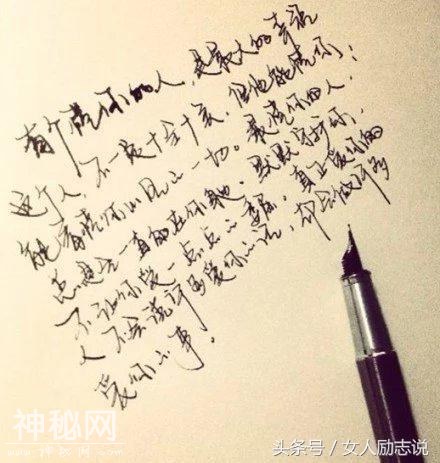 有个懂你的人，是最大的幸福
这个人，不一定十全十美，但他能懂你；
能看懂你心里的一切。最懂你的人，
总是会一直的在你身边，默默守护你，
不让你受一点点的委屈。真正爱你的
人不会说许多爱你的话，却会做许多
爱你的事。
神秘网
头条号 / 女人励志说